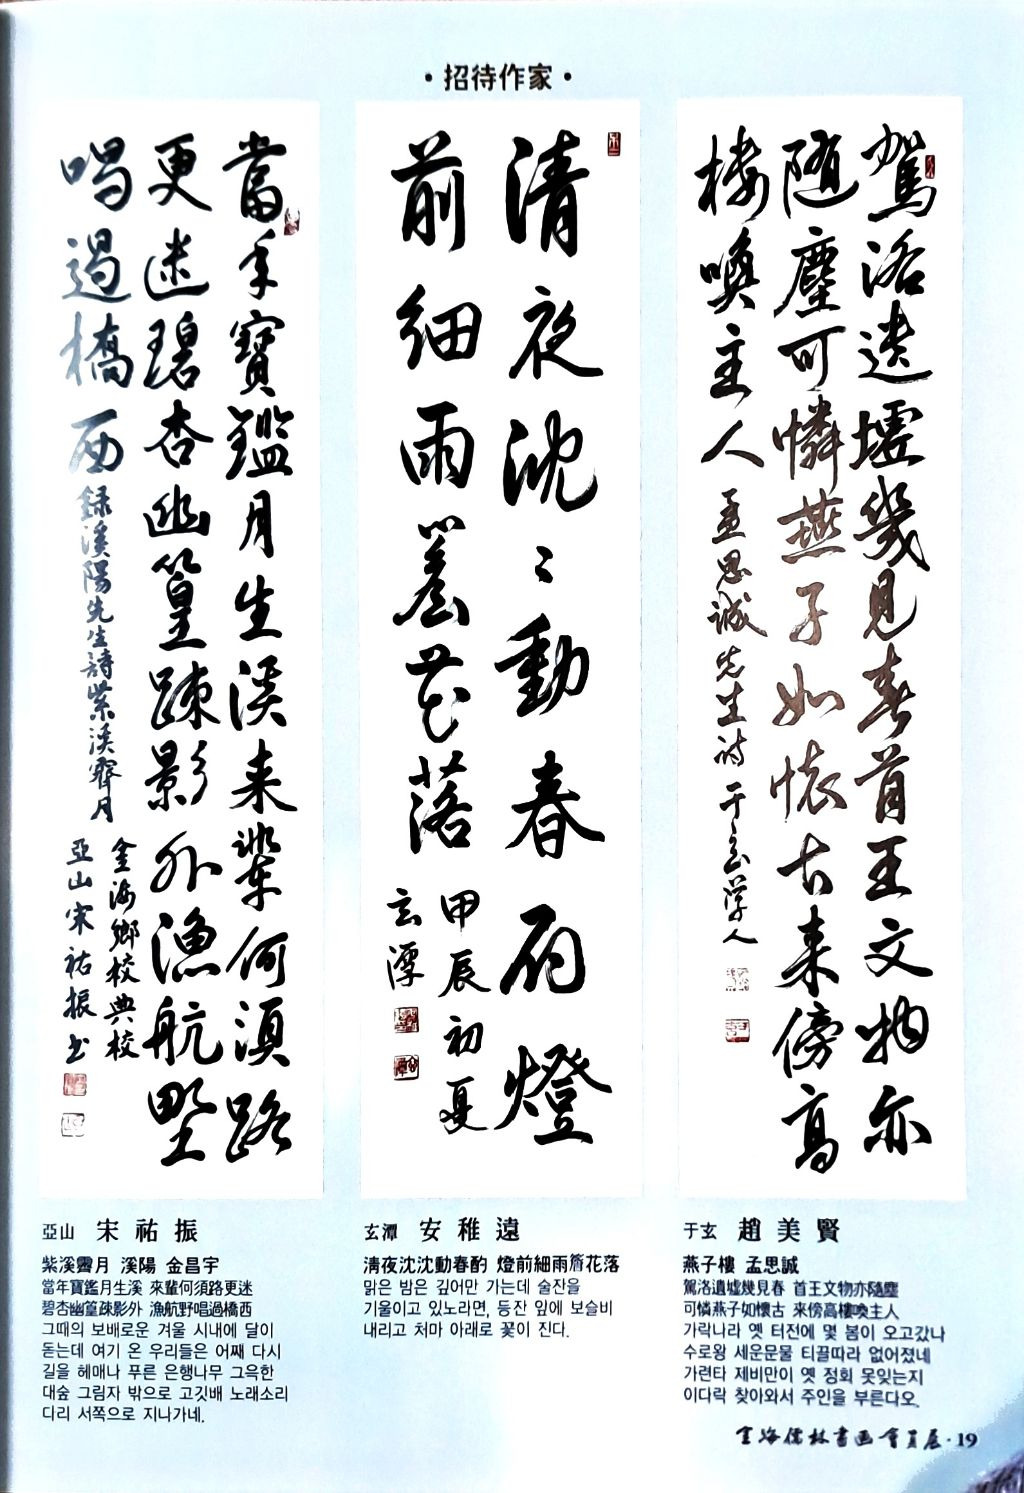 ·招待作家·
駕洛遺墟幾見春首王文物亦
隨塵可憐燕子如懷古來傍高
樓喚主人 孟思誠先生詩 于玄學人
清夜沈〻動春酌 燈
前細雨簷花落
甲辰初夏
玄潭
當年寶鑑月生溪来輩何須路
更迷碧杏幽篁疎影外漁航野
唱過橋西 錄溪陽先生詩紫溪霽月
金海鄉校典校
亞山宋祐振书
亞山 宋祐振
紫溪霽月 溪陽 金昌宇
當年寶鑑月生溪 來輩何須路更迷
碧杏幽篁疎影外 漁航野唱過橋西
그때의 보배로운 겨울 시내에 달이
돋는데 여기 온 우리들은 어째 다시
길을 헤매나 푸른 은행나무 그윽한
대숲 그림자 밖으로 고깃배 노래소리
다리 서쪽으로 지나가네.
玄潭 安稚遠
淸夜沈沈動春酌 燈前細雨簷花落
맑은 밤은 깊어만 가는데 술잔을
기울이고 있노라면, 등잔 앞에 보슬비
내리고 처마 아래로 꽃이 진다.
于玄 趙美賢
燕子樓 孟思誠
駕洛遺墟幾見春 首王文物亦隨塵
可憐燕子如懷古 來傍高樓喚主人
가락나라 옛 터전에 몇 봄이 오고갔나
수로왕 세운문물 티끌따라 없어졌네
가련타 제비만이 옛 정회 못잊는지
이다락 찾아와서 주인을 부른다오.
金海儒林書画會員展·19